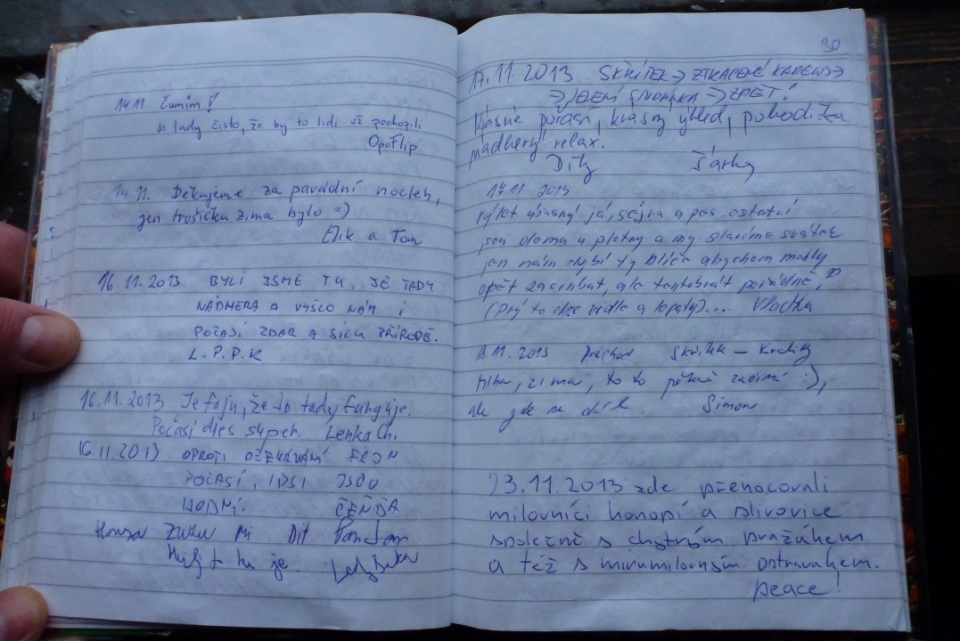 14.11 Čumím!
je tady čisto, že by to lidi už pochopili
OgoFlip
14.11. Děkujeme za parádní nocleh,
jen trošičku zima bylo =)
Elik a Tom
16.11.2013 BYLI JSME TU, JE TADY
NÁDHERA A VYŠLO NÁM I
POČASÍ ZDAR A SÍLU PŘÍRODĚ.
L.P.P.K
16.11.2013 Je fajn, že to tady funguje.
Počasí dnes super. Lenka Ch.
16.11 2013 OPROTI OČEKÁVÁNÍ
POČASÍ, I PSI JSOU
HODNÍ. ČENĎA
Honza
Hezky tu je.
30
17.11.2013 SKŘÍTEK → ZTRACENÉ KAMENY →
→ → ZPĚT!
krásný výhled, pohodička
nádherný relax.
Šárka
17.11 2013
já, ségra a pes ostatní
jsou doma u plotny a my slavíme svátek
jen nám chybí ty klíče abychom mohly
opět zacinkat, ale tentokrát pořádně,
(Prý to chce vidle a lopaty)... Vlaďka
11.2013 Přechod Skřítek –
Mlha, zima, to to pěkně začíná :),
ale jde se dál. Simona
23.11.2013 zde přenocovali
milovníci konopí a slivovice
společně s chytrým pražákem
a též s mírumilovným ostravakem.
peace!